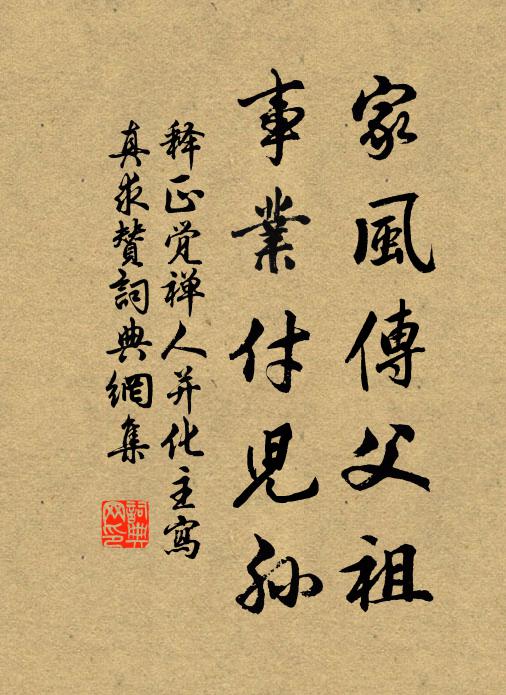 家風傳父祖
事業付兒孙
释正觉禅人并化主寫
真求贊詞典網集
詞典網印